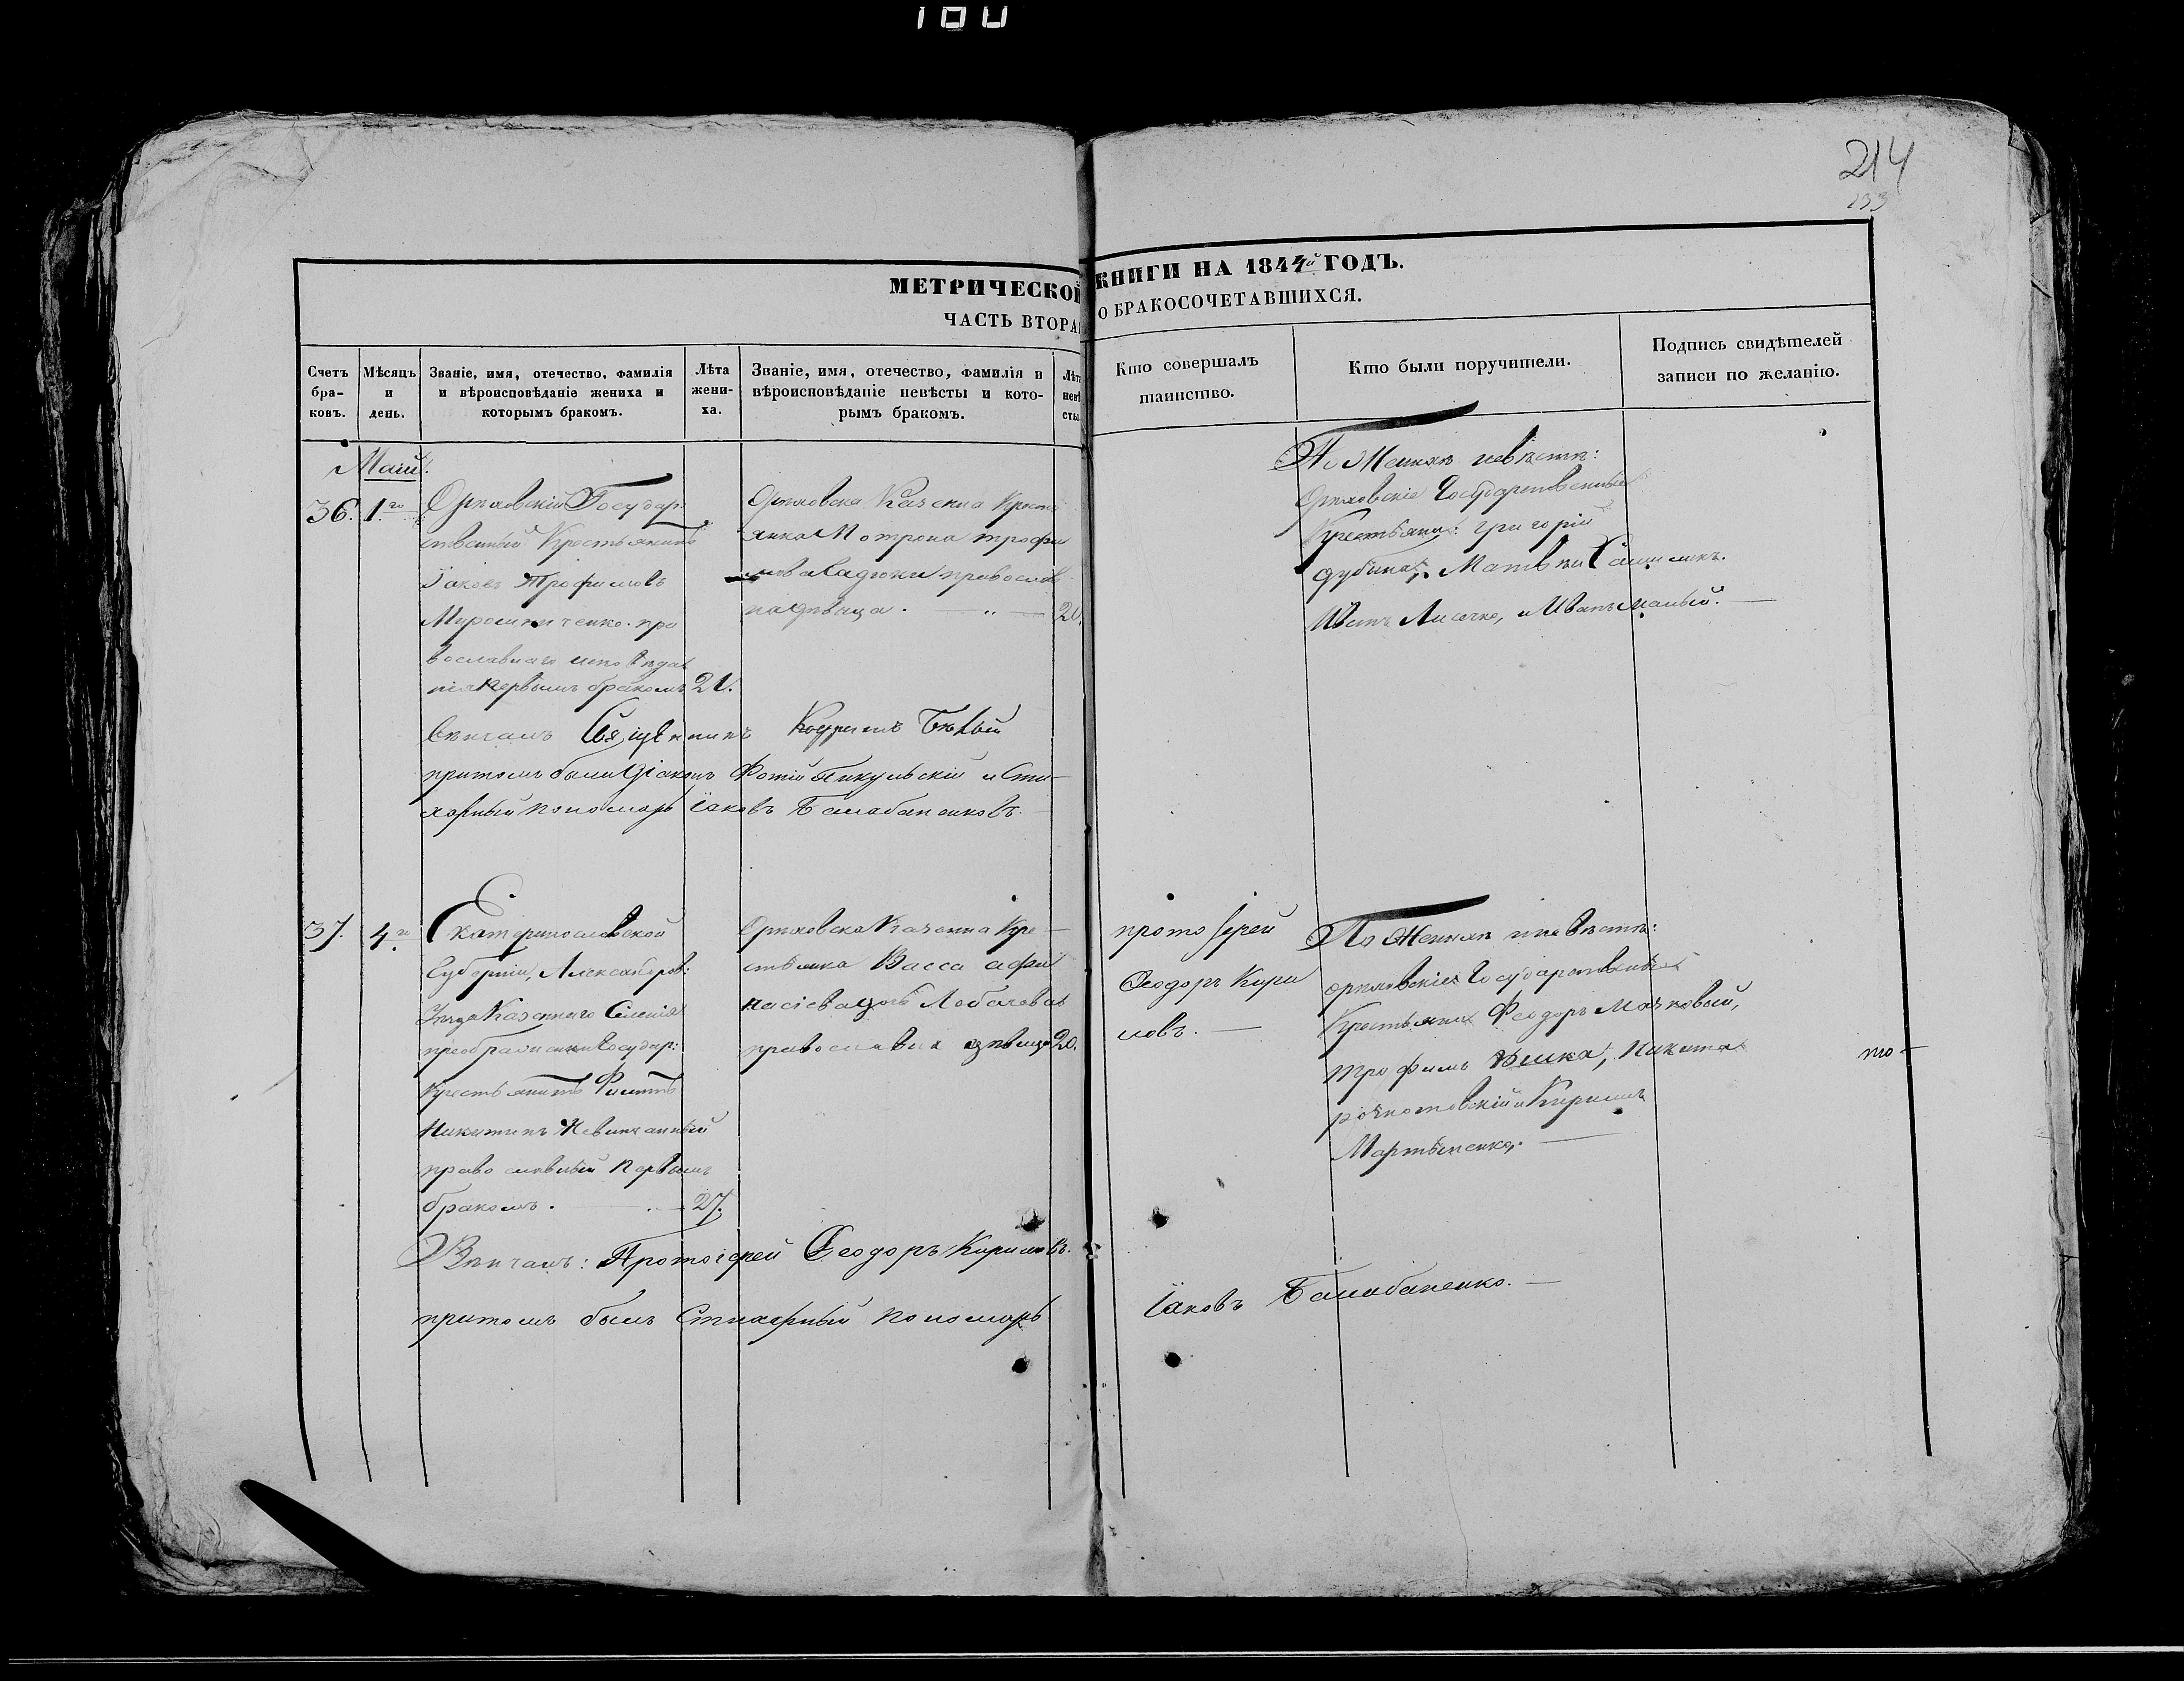 180
214
233
МЕТРИЧЕСКОЙ КНИГИ НА 1844й ГОДЪ.
ЧАСТЬ ВТОРАЯ О БРАКОСОЧЕТАВШИХСЯ.
Счетъ бра-ковъ.
Мѣсяцъ и день.
Званіе, имя, отечество, фамилія и вѣроисповѣданіе жениха и которымъ бракомъ.
Лѣта жени-ха.
Званіе, имя, отечество, фамилія и вѣроисповѣданіе невѣсты и кото-рымъ бракомъ.
Лѣта невѣ сты
Кто совершалъ таинство.
Кто были поручители.
Подпись свидѣтелей записи по желанію.
Маій.
36. 1.го
Орѣховскій Государ:
ственный Крестьянинъ
Іаковъ Трофимовъ
Мирошниченко. пра
вославнаго исповѣда
нія первымъ бракомъ 21.
Орѣховска Казенна Крестъ
янка Мотрона трофи
мова православ
на дѣвица. — „ — 20.
По Женихѣ невѣстѣ:
Орѣховскіе Государственныи
Крестьяне: григорій
дубина, Матвѣй
Иванъ Лисечко, и Иванъ малый. —
Вѣнчалъ Священникъ Бѣлый
притомъ были Діаконъ Фотій Пикульскій и Сти-
харный пономарь Іаковъ Балабаненковъ.
37. 4.го
Екатеринославской
Губерніи, Александров:
Уѣзда Казеннаго Селенія
преображенки Государ:
Крестьянинъ Филиппъ
Никитинъ Невинчанный
православный первымъ
бракомъ. — 27.
Орѣховска Казенна Кре-
стьянка Васса афа
насіева дочь Лобачева
православна дѣвица 20.
протоіерей
Феодоръ Кири
ловъ. —
По Женихѣ и невѣстѣ:
орѣховскіе Государственные
Крестьяне Феодоръ
трофимъ никита
и Кирилъ
Мартыненко. —
по-
Вѣнчалъ: Протоіерей Феодоръ Кириловъ.
притомъ былъ Стихарный пономарь Іаковъ Балабаненко. —